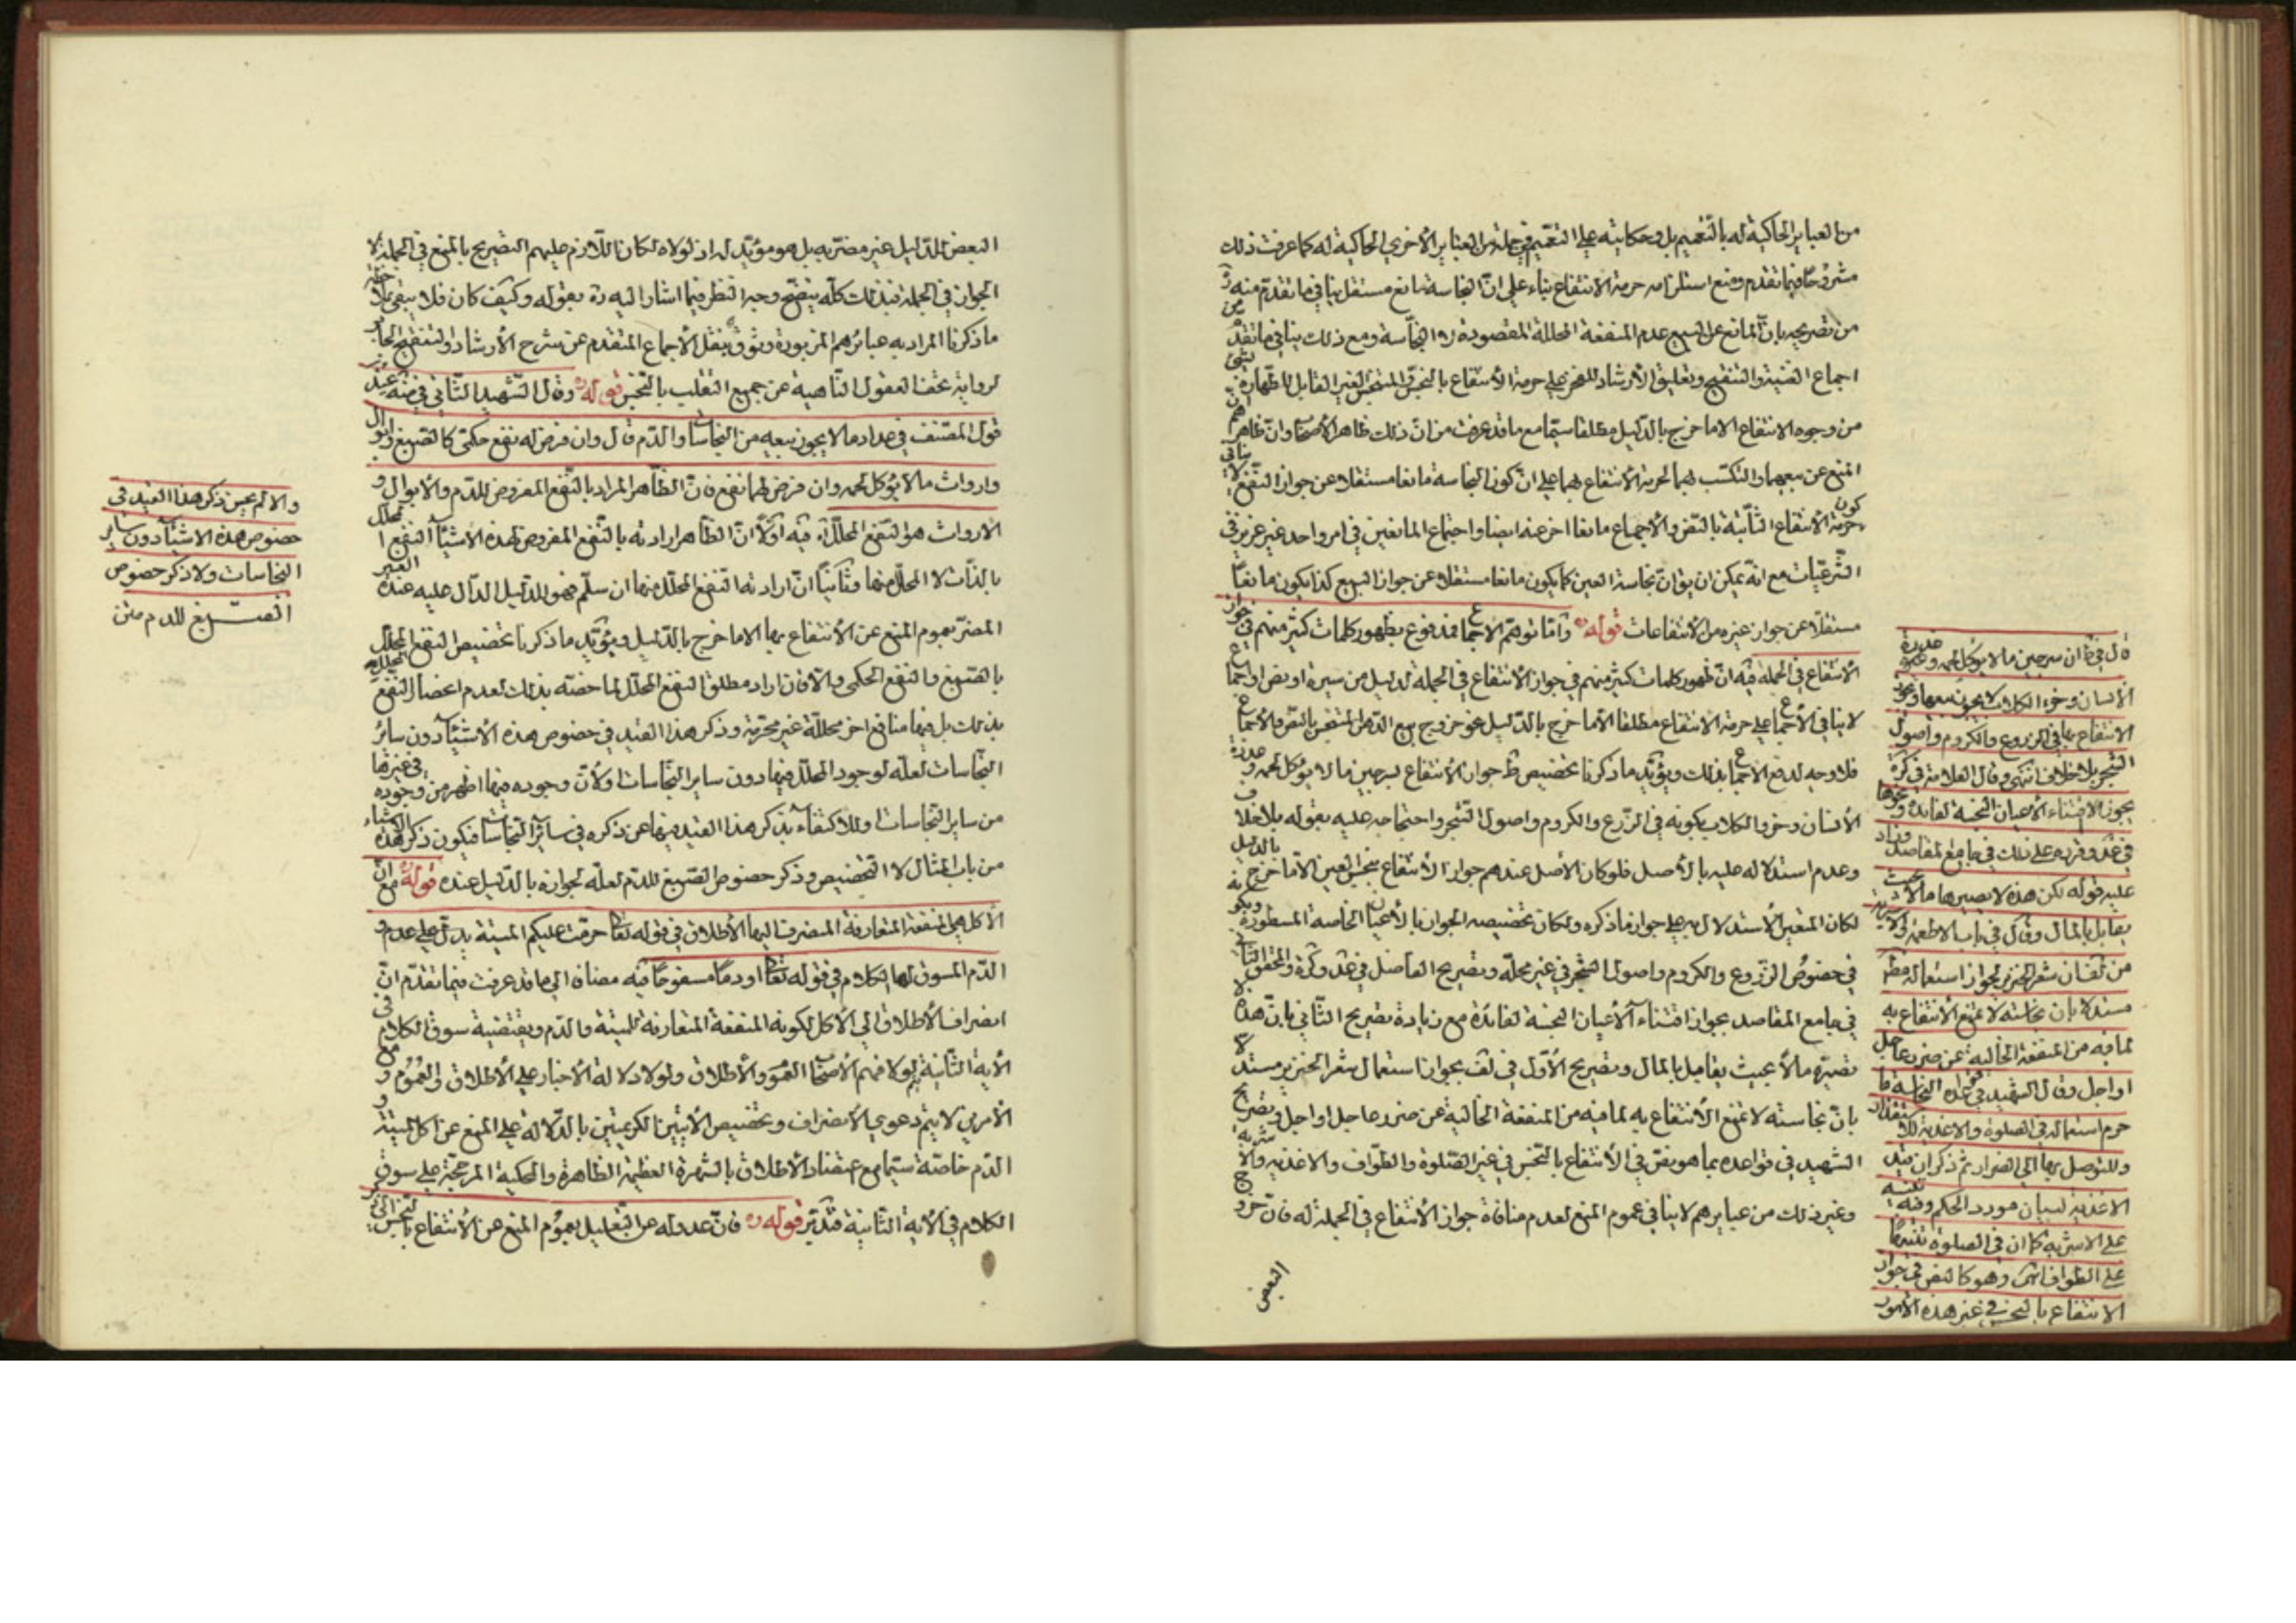 من العباير الحاكية له بالتعميم بل وحكايته على التعميم في جملة من العباير الأخرى الحاكية له كما عرفت ذلك
مشروحًا فيما تقدم ومنع استلزامه حرمة الانتفاع بناء على انّ النجاسة مانع مستقل ينافي ما تقدّم منه ره
من تصريحه بانّ المانع عن البيع عدم المنفعة المحللة المقصودة لا النجاسة ومع ذلك ينافي ما تقدم من
اجماع الغنية والتنقيح وتعليق الأرشاد للفخر على حرمة الأنتفاع بالنجس والمتنجس الغير القابل للطهارة بشئ
من وجوه الانتفاع الا ما خرج بالدليل مطلقا سيّما مع ما قد عرفت من انّ ذلك ظاهر الأصحاب وانّ ظاهرهم
المنع عن بيعها والتكسّب بها لحرمة الأنتفاع بها على انّ كون النجاسة مانعا مستقلا عن جواز النفع لا ينافي
كون حرمة الأنتفاع الثابتة بالنصّ والأجماع مانعا اخر عنه ايضا واجتماع المانعين في امر واحد غير عزيز في
الشّرعيّات مع انّه يمكن ان يق انّ نجاسة العين كما يكون مانعا مستقلا عن جواز البيع كذا يكون مانعًا
مستقلّا عن جواز غيره من الأنتفاعات قوله ره وامّا توهّم الاجماع فمدفوع بظهور كلمات كثير منهم في جواز
الأنتفاع في الجملة فيه انّ ظهور كلمات كثير منهم في جواز الأنتفاع في الجملة لدليل من سيرة او نص او اجماع
لا ينافي الأجماع على حرمة الانتفاع مطلقا الّا ما خرج بالدّليل نحو خروج بيع الدّهن المتنجس بالنصّ والأجماع
فلا وجه لدفع الاجماع بذلك ويؤيّد ما ذكرنا تخصيص ط جواز الأنتفاع بسرجين ما لا يؤكل لحمه وعذرة
الأنسان وخرؤ الكلاب بكونه في الزّرع والكروم واصول الشّجر واحتجاجه عليه بقوله بلا خلاف
وعدم استدلاله عليه بالأصل فلو كان الأصل عندهم جواز الأنتفاع بنجس العين الّا ما خرج بالدليل
لكان المتعين الأستدلال به على جواز ما ذكره ولكان تخصيصه الجواز بالأعيان الخاصة المسطورة وبكونه
في خصوص الزّروع والكروم واصول الشجر في غير محلّه وتصريح الفاضل في عد وكرة والمحقق الثاني
في جامع المقاصد بجواز اقتناء الأعيان النجسة لفائدة مع زيادة تصريح الثّاني بانّ هذا لا
تصيّره مالًا بحيث يقابل بالمال وتصريح الأوّل في لف بجواز استعمال شعر الخنزير مستدلا
بانّ نجاسته لا تمنع الأنتفاع به لما فيه من المنفعة الخالية عن ضرر عاجل او اجل وتصريح
الشهيد في قواعده بما هو نصّ في الأنتفاع بالنجس في غير الصّلوة والطّواف والاغذية والأشربة
وغير ذلك من عبايرهم لا ينافي عموم المنع لعدم منافاة جواز الأنتفاع في الجملة له فانّ خروج
البعض
قال في ط ان سرجين ما لا يؤكل لحمه وعذرة
الأنسان وخرء الكلاب لا يجوز بيعها ويجوز
الانتفاع بها في الزروع والكروم واصول
الشجر بلا خلاف انتهى وقال العلامة في كرة
يجوز الاقتناء الأعيان النجسة لفايدة ونحوها
في عد وقرره على ذلك في جامع المقاصد وزاد
عليه قوله لكن هذه لا تصيرها مالا بحيث
يقابل بالمال وقال في باب الاطعمة والاشربة
من لف ان شعر الخنزير يجوز استعماله مط
مستدلا بان نجاسته لا تمنع الأنتفاع به
لما فيه من المنفعة الخالية عن ضرر عاجل
او اجل وقال الشهيد في قواعده النجاسة ما
حرم استعماله في الصلوة والاغذية للاستقذار
وللتوصل بها الى الفرار ثم ذكر ان قيد
الاغذية لبيان مورد الحكم وفيه تنبيه
على الاشربة كما ان في الصلوة تنبيها
على الطواف انتهى وهو كالنص في جواز
الانتفاع بالنجس في غير هذه الأمور
البعض للدّليل غير مضرّ به بل هو مؤيّد له اذ لولاه لكان اللّازم عليهم التصريح بالمنع في الجملة لا
الجواز في الجملة فبذلك كلّه يتضح وجه النظر فيما اشار اليه ره بقوله وكيف كان فلا يبقى بملاحظة
ما ذكرنا المراد به عبائرهم المزبورة وثوق بنقل الأجماع المتقدم عن شرح الأرشاد والتنقيح الجابر
لرواية تحف العقول الناهية عن جميع التقلب بالنجس قوله ره وقال الشهيد الثّاني في ضه عند
قول المصنف في عداد ما لا يجوز بيعه من النجاسات والدّم قال وان فرض له نفع حكمي كالصبغ وابوال
وارواث ما لا يؤكل لحمه وان فرض لهما نفع فانّ الظّاهر المراد بالنّفع المفروض للدّم والأبوال و
الارواث هو النّفع المحلّل فيه اوّلًا انّ الظّاهر ارادته بالنّفع المفروض لهذه الأشياء النفع المحلل
بالذّات لا المحلّل منها وثانيًا انّ ارادته النّفع المحلّل منها ان سلّم فهو للدّليل الدّال عليه عنده الغير
المضرّ بعموم المنع عن الأنتفاع بها الا ما خرج بالدّليل ويؤيّد ما ذكرنا تخصيص النفع المحلل
بالصّبغ والنفع الحكمي والّا فان اراد مطلق النفع المحلّل لما خصّه بذلك لعدم انحصار النفع المحلل
بذلك بل فيها منافع اخر محلّلة غير محرّمة وذكر هذا القيد في خصوص هذه الأشياء دون سائر
النّجاسات لعلّه لوجود المحلّل فيها دون ساير النّجاسات او لأنّ وجوده فيها اظهر من وجوده في غيرها
من ساير النّجاسات او للاكتفاء بذكر هذا القيد فيها عن ذكره في سائر النجاسات فيكون ذكر هذه الاشياء
من باب المثال لا التّخصيص وذكر خصوص الصّبغ للدّم لعلّه لجوازه بالدّليل عنده قوله ره مع انّ
الأكل هي المنفعة المتعارفة المنصرف اليها الأطلاق في قوله تعالى حرّمت عليكم الميتة يدلّ على عدم و
الدّم المسوق لها الكلام في قوله تعالى او دمًا مسفوحًا فيه مضافا الى ما قد عرفت فيما تقدّم انّ
انصراف الأطلاق الى الأكل لكونه المنفعة المتعارفة للميتة والدّم ويقتضيه سوق الكلام في
الأية الثّانية لولا فهم الأصحاب العموم والأطلاق ولولا دلالة الأخبار على الأطلاق والعموم ومع
الأمرين لا يتم دعوى الأنصراف وتخصيص الأيتين الكريمتين بالدّلالة على المنع عن اكل الميتة و
الدّم خاصّة سيّما مع اعتضاد الأطلاق بالشهرة العظيمة الظاهرة والمحكية المرجّحة على سوق
الكلام في الأية الثّانية فتدبّر قوله ره فانّ عدوله عن التّعليل بعموم المنع عن الأنتفاع بالنجس
والا لم يحسن ذكر هذا القيد في
خصوص هذه الاشيآء دون ساير
النجاسات ولا ذكر خصوص
الصبغ للدم متن